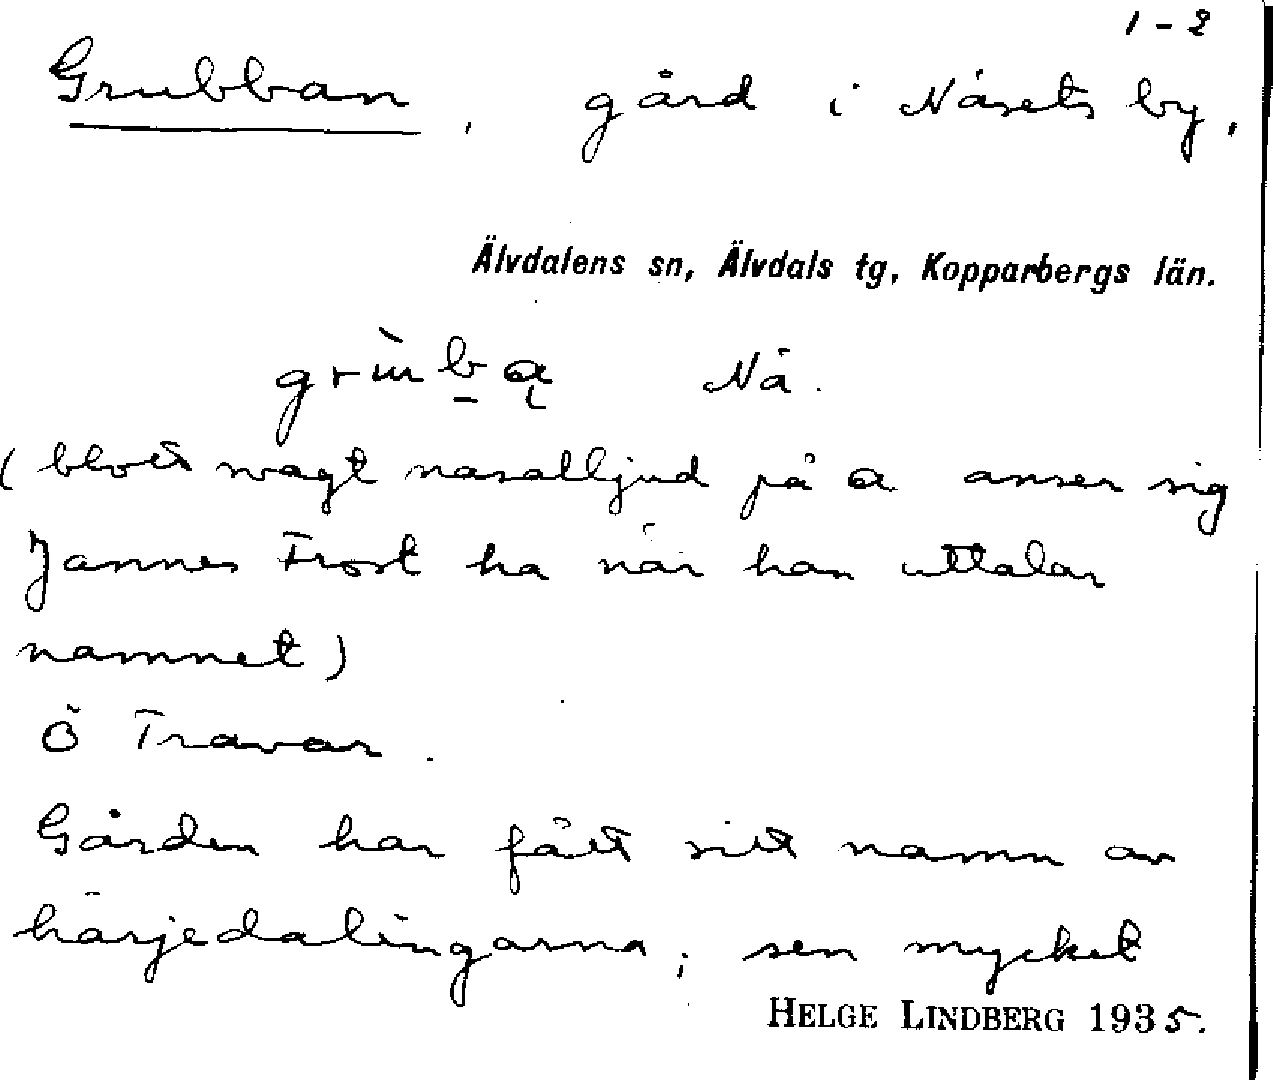 1-2
Grubban, gård i Näsets by,
Älvdalens sn, Älvdals tg, Kopparbergs län.
Nä.
(blott svagt nasalljud på a anser sig
Jannes Frost ha när han uttalar
namnet)
Ö Travar.
Gården har fått sitt namn av
härjedalingarna, sen mycket
HELGE LINDBERG 1935.